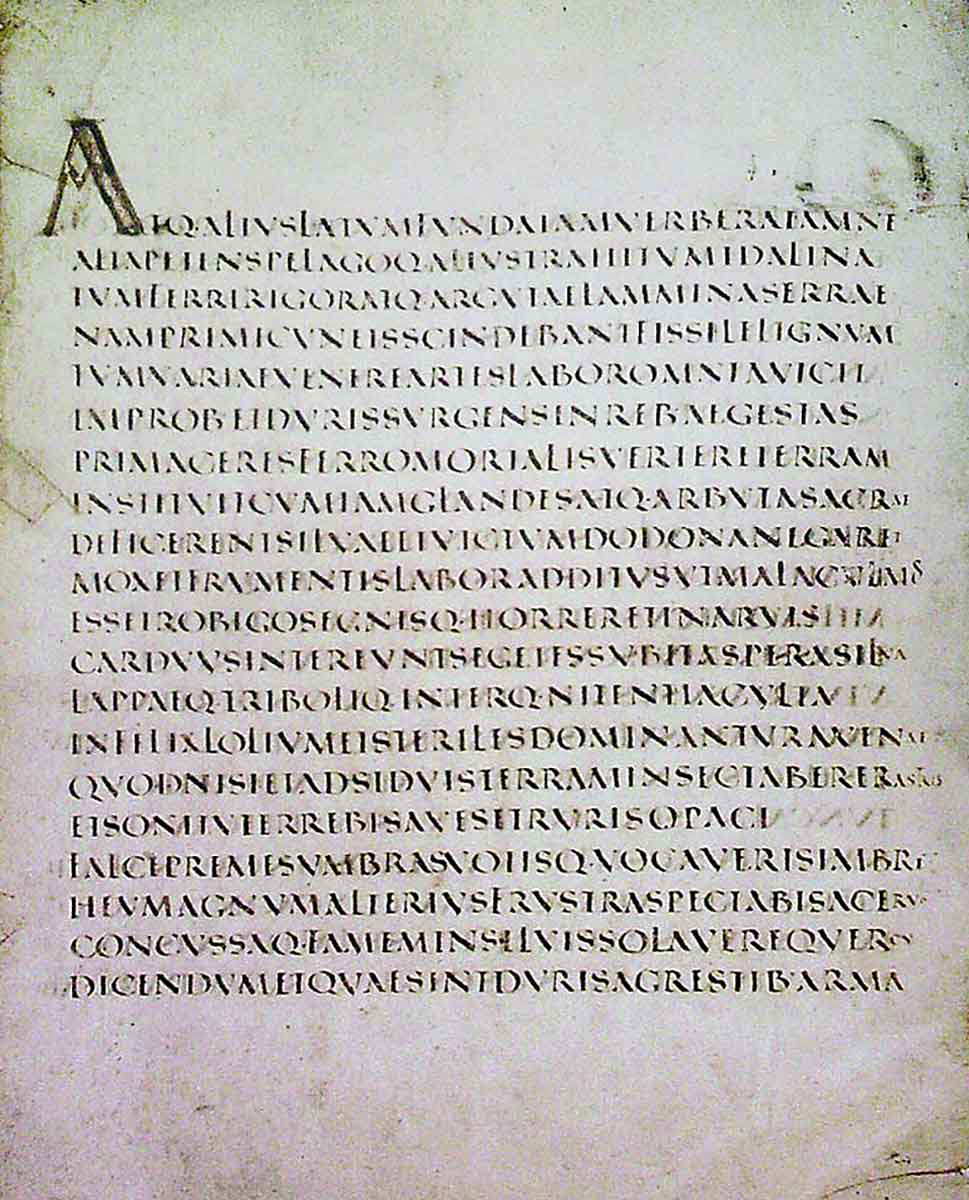 ATQ·ALIVSLATVMFVNDAIAMVERBERATAMNE
ALTAPETENSPELAGOQ·ALIVSTRAHITVMIDALINA
TVMFERRIRIGORATQ·ARGVTAELAMMINASERRAE
NAMPRIMICVNEISSCINDEBANTFISSILELIGNVM
TVMVARIAEVENEREARTESLABOROMNIAVICIT
IMPROBETDVRISSVRGENSINREB·AEGESTAS
PRIMACERESFERROMORTALISVERTERETERRAM
INSTITVITCVMIAMGLANDESATQ·ARBVTASACRAE
DEFICERENTSILVAEETVICTVMDODONANEGARET
MOXETFRVMENTISLABORADDITVSVTMALACVLMOS
ESSETROBIGOSEGNISQ·HORRERETINARVIS
CARDVVSINTEREVNTSEGETESSVBITASPERASILVA
LAPPAEQ·TRIBOLIQ·INTERQ·NITENTIACVLTA
INFELIXLOLIVMETSTERILESDOMINANTVRAVENAE
QVODNISIETADSIDVISTERRAMINSECTABERERASTRIS
ETSONITVTERREBISAVESETRVRISOPACI
FALCEPREMESVMBRASVOTISQ·VOCAVERISIMBRE
HEVMAGNVMALTERIVSFRVSTRASPECTABISACERVO
CONCVSSAQ·FAMEMINSILVISSOLAVEREQVERCV
DICENDVMETQVAESINTDVRISAGRESTIB·ARMA